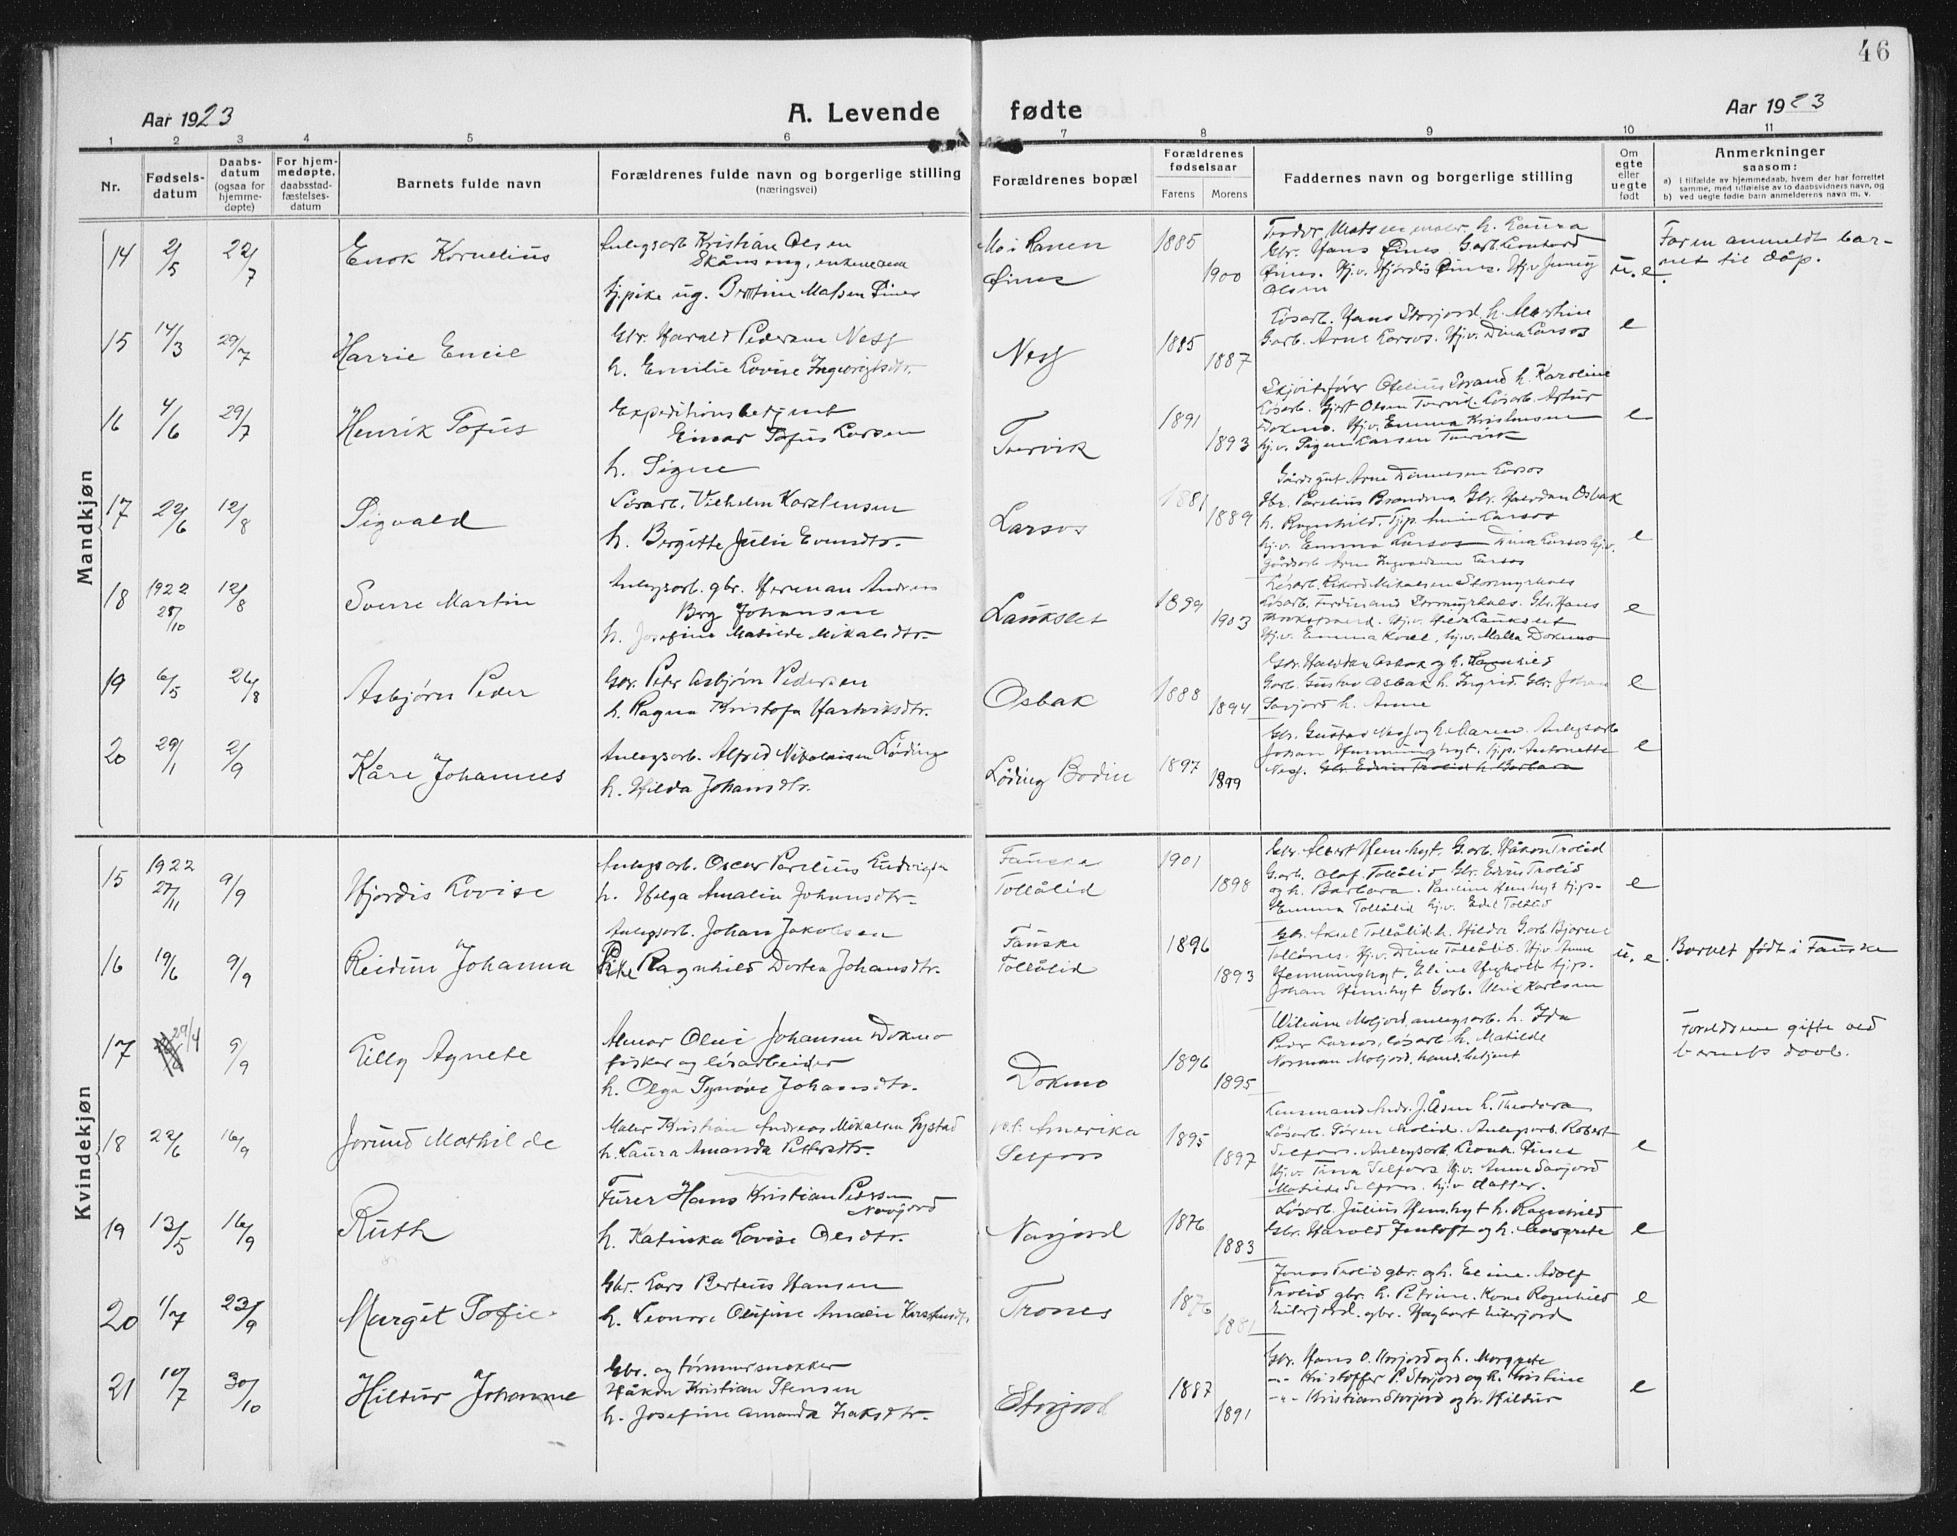 46
Aar 1923
A. Levende fødte
Aar 1923
1 2 3 4 5 6 7 8 9 10 11
Nr.
Fødsels-
datum
Daabs-
datum
(ogsaa for
hjemme-
døpte)
For hjem-
medøpte,
daabsstad-
fæstelses-
datum
Barnets fulde navn
Forældrenes fulde navn og borgerlige stilling
(næringsvei)
Forældrenes bopæl
Forældrenes
fødselsaar
Farens Morens
Faddernes navn og borgerlige stilling
Om
egte
eller
uegte
født
Anmerkninger
saasom:
a) i tilfælde av hjemmedaab, hvem der har forrettet
samme, med tilføielse av to daabsvidners navn, og
b) ved uegte fødte barn anmelderens navn m. v.
Mandkjøn
14 2/5 22/7 Enok Kornelius
Anlegsarb Kristian Olsen
Skånseng, enkemann
tj.pike ug.
Mo i Ranen
Øines
1885 1900
Hans Øines
Øines. Hj.v. Hjørdis Øines.
Olsen
u. e.
Faren anmeldt bar-
net til dåp.
15 14/3 29/7 Harrie Emil
Gbr. Harald Pedersen Ness
h. Emilie Lovise
Ness
1885 1887
Løsarb. Hans Storjord h. Martine
Garb. Arne Larsos. Hj.v. Dina Larsos
e
16 4/6 29/7 Henrik Sofus
Expeditionsbetjent
Einar Sofus Larsen
h. Signe
Tvervik
1891 1893
Strand h. Karoline
Løsarb. Olsen Tvervik Løsarb. Artur
Dokmo. Hj.v. Emma Kristensen
hj.v. Signe Larsen Tvervik
e
17 22/6 12/8 Sigvald
Løsarb. Vilhelm Karstensen
h. Bergitte Julie Evensdtr.
Larsos
1881 1889
Gårdsgut Arne Larsos
Gbr. Halvdan Osbak
h. Ragnhild. Tj.p. Larsos
hj.v. Emma Larsos Dina Larsos hj.v.
Gårdsarb Arne Larsos
e
18 1922 28/10 12/8 Sverre Martin
Anlegsarb. gbr. Herman Andreas
Berg Johansen
h. Josefine Matilde Mikalsdtr.
Laukslet
1899 1903
Løsarb. Rikard Mikalsen Stormyrhals
Løsarb. Ferdinand Stormyrhals. Gbr. Hans
Hj.v. Laukslet
Hj.v. Emma hj.v. Malla Dokmo
e
19 6/5 26/8 Asbjørn Peder
Gbr. Peter Asbjørn Pedersen
h. Ragna Kristofa Hartviksdtr.
Osbak
1888 1894
Gbr. Halvdan Osbak og h. Ragnhild
Garb. Gustav Osbak h. Ingrid. Gbr. Johan
h. Anne
e
20 29/1 2/9 Kåre Johannes
Anlegsarb. Alfred Nikolaisen Løding
h. Hilda Johansdtr.
Løding Bodin
1897 1899
Gbr. Gustav Ness og h. Maren. Anlegsarb
Johan Hemminghyt. tj.p. Antonette
Ness. Gbr. Edvin Trolid h. Barbara
e
Kvindekjøn
15 1922 27/11 9/9 Hjørdis Lovise
Anlegsarb. Oscar Parelius Ludvigsen
h. Helga Amalie Johansdtr.
Fauske
Tollålid
1901 1898
Gbr. Albert Hemhyt. Garb. Håkon Trolid
Garb. Olaf Tollålid Gbr. Edvin Trolid
og h. Barbara. Pauline Hemhyt tj.p.
Emma Tollålid hj.v. Edel Tollålid
e
16 19/6 9/9 Reidun Johanna
Anlegsarb. Johan Jakobsen
Pike Ragnhild Dortea Johansdtr.
Fauske
Tollålid
1896 1893
Gbr. Aksel Tollålid h. Hilda Garb Bjarne
Tollånes. Hj.v. Dina Tollålid. Hj.v. Anne
Hemminghyt. Eline tj.p.
Johan Hemhyt Garb. Ulrik Karlsen
u. e.
Barnet født i Fauske
17 29/4 9/9 Lilly Agnete
Almar Olai Johansen Dokmo
fisker og løsarbeider
h. Olga Synøve Johansdtr.
Dokmo
1896 1895
William Moljord, anlegsarb. h. Ida
Peder Larsos, løsarb. h. Matilde
Norman Moljord, hand.betjent
Foreldrene gifte ved
barnets daab.
18 22/6 16/9 Jorund Mathilde
Maler Kristian Andreas Mikalsen Lystad
h. Laura Amanda Pettersdtr.
Amerika
Selfors
1895 1897
Lensmand Andr. J. Åsen h. Theodora
Løsarb. Søren Molid. Anlegsarb. Robert
Selfors. Anlegsarb
Hj.v. Tina Selfors Hj.v. Anna
Matilde Selfors. hj.v. datter.
e
19 13/5 16/9 Ruth
Furer Hans Kristian Pedersen
Navjord
h. Katinka Lovise Olsdtr.
Navjord
1876 1883
Løsarb. Julius Hemhyt h. Ragnhild
Gbr. Harald Jentoft og h. Margrete
e
20 1/7 23/9 Margit Sofie
Gbr. Lars Berteus Hansen
h. Leonore Olufine Amalie
Trones
1876 1881
Jonas Trolid gbr. og h. Eline. Adolf
Trolid gbr. h. Petrine. Kone Ragnhild
Eiterjord. gbr. Hagbart Eiterjord
e
21 10/7 30/10 Hildur Johanne
Gbr. og tømmersnekker
Håkon Kristian Stensen
h. Josefine Amanda Isaksdtr.
Storjord
1887 1891
Gbr. Hans O. Storjord og h. Margrete
-"- Kristoffer P. Storjord og h. Kristine
-"- Kristian Storjord og h. Hildur
e